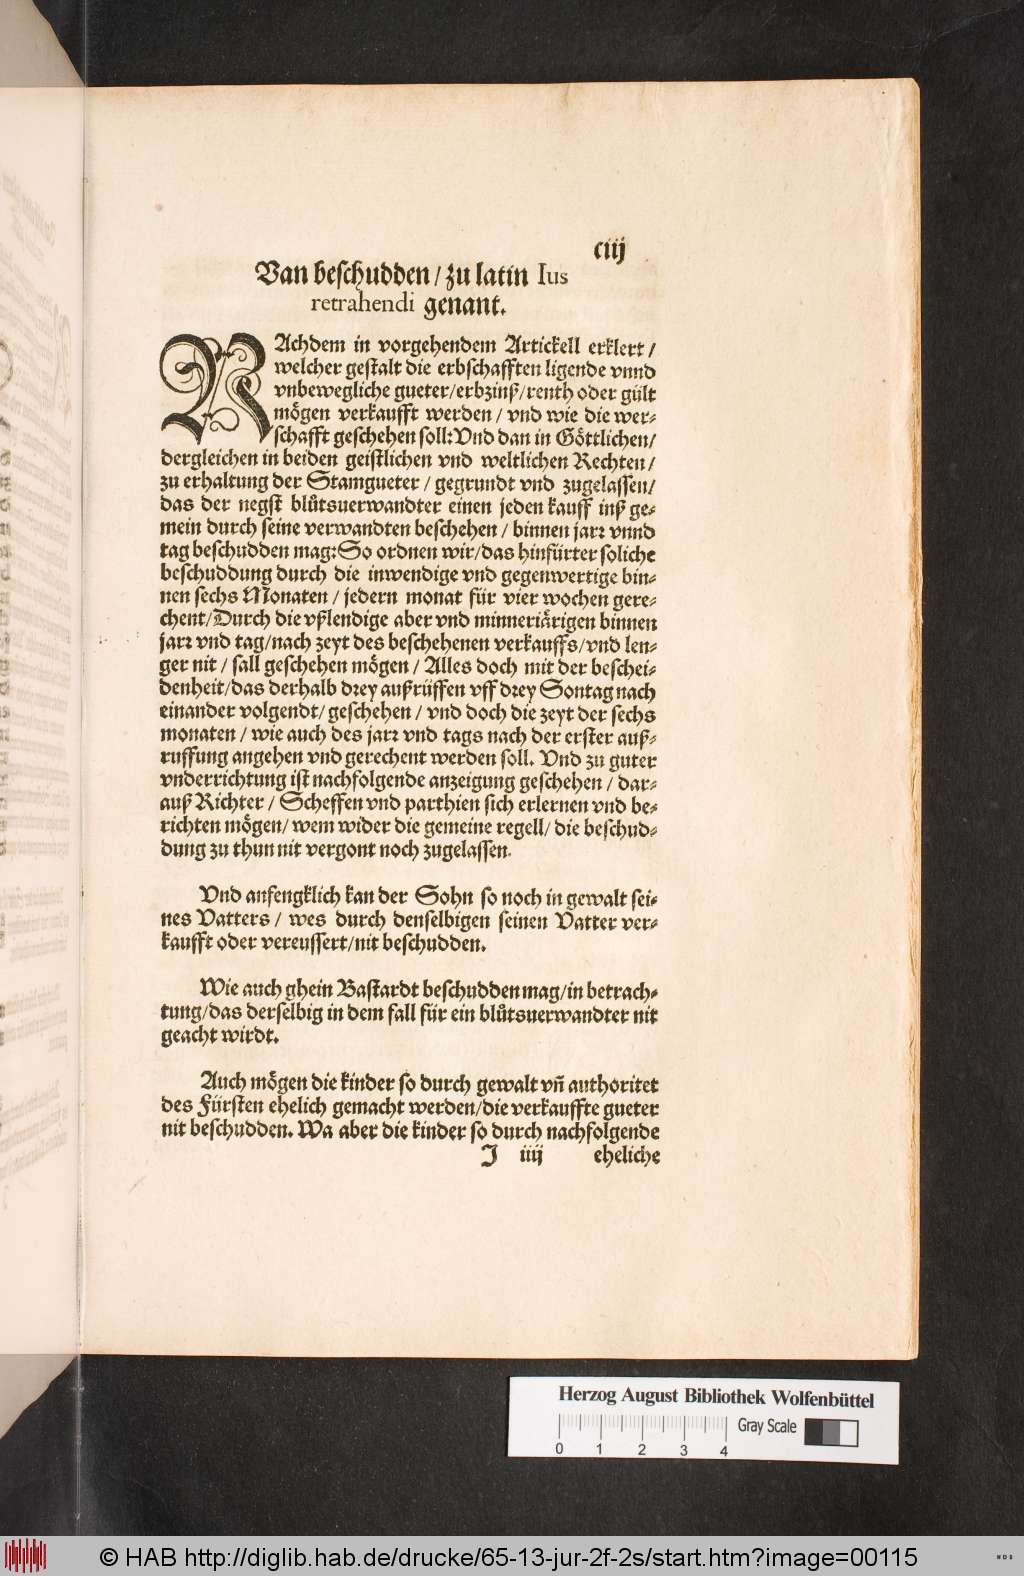 ciij
Van beschudden / zu latin Ius
retrahendi genant.
NAchdem in vorgehendem Artickell erklert /
welcher gestalt die erbschafften ligende vnnd
vnbewegliche gueter/erbzinß/renth oder gült
mögen verkaufft werden / vnd wie die wer-
schafft geschehen soll: Vnd dan in Göttlichen/
dergleichen in beiden geistlichen vnd weltlichen Rechten /
zu erhaltung der Stamgueter / gegrundt vnd zugelassen/
das der negst blůtsuerwandter einen jeden kauff inß ge-
mein durch seine verwandten beschehen / binnen jarz vnnd
tag beschudden mag: So ordnen wir/das hinfürter soliche
beschuddung durch die inwendige vnd gegenwertige bin-
nen sechs Monaten / jedern monat für vier wochen gere-
chent/Durch die vßlendige aber vnd minneriärigen binnen
jarz vnd tag/nach zeyt des beschehenen verkauffs/vnd len-
ger nit / sall geschehen mögen / Alles doch mit der beschei-
denheit/das derhalb drey außrüffen vff drey Sontag nach
einander volgendt/ geschehen / vnd doch die zeyt der sechs
monaten / wie auch des jarz vnd tags nach der erster auß-
ruffung angehen vnd gerechent werden soll. Vnd zu guter
vnderrichtung ist nachfolgende anzeigung geschehen / dar-
auß Richter / Scheffen vnd parthien sich erlernen vnd be-
richten mögen/ wem wider die gemeine regell/ die beschud-
dung zu thun nit vergont noch zugelassen.
Vnd anfengklich kan der Sohn so noch in gewalt sei-
nes Vatters / wes durch denselbigen seinen Vatter ver-
kaufft oder vereussert/nit beschudden.
Wie auch ghein Bastardt beschudden mag/in betrach-
tung/das derselbig in dem fall für ein blůtsuerwandter nit
geacht wirdt.
Auch mögen die kinder so durch gewalt vñ authoritet
des Fürsten ehelich gemacht werden/die verkauffte gueter
nit beschudden. Wa aber die kinder so durch nachfolgende
J iiij eheliche
Herzog August Bibliothek Wolfenbüttel
0 1 2 3 4 Gray Scale
© HAB http://diglib.hab.de/drucke/65-13-jur-2f-2s/start.htm?image=00115